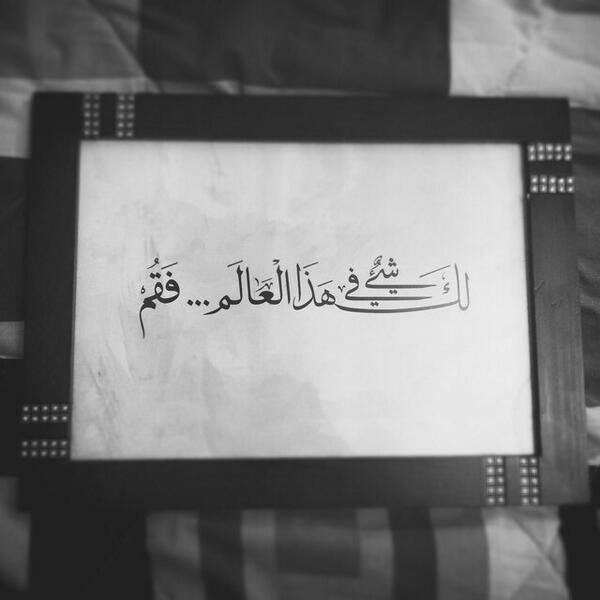 لكَ شيْءٌ في هَذَا الْعَالَم ... فَقُمْ